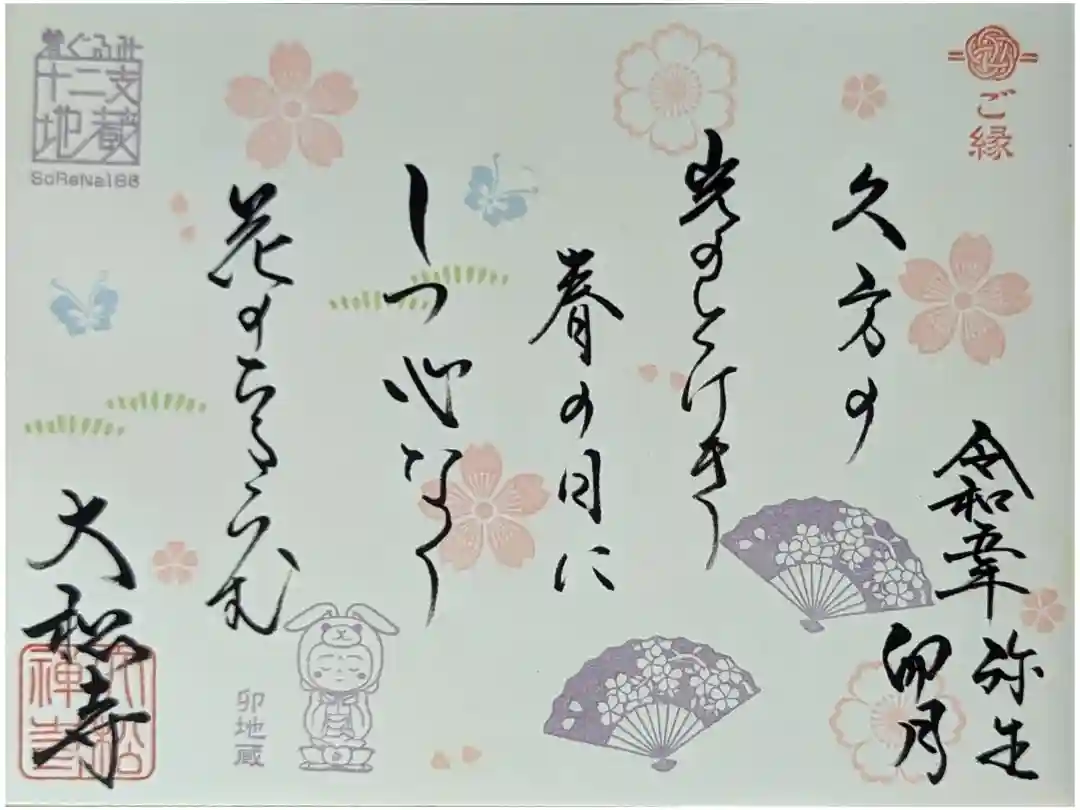 ご縁
令和五年
弥生
卯月
久方の
光のとけき
春の日に
しつ心なく
花のちるらむ
大松寺
大松
禅寺
卯地蔵
着ぐるみ
十二支
地蔵